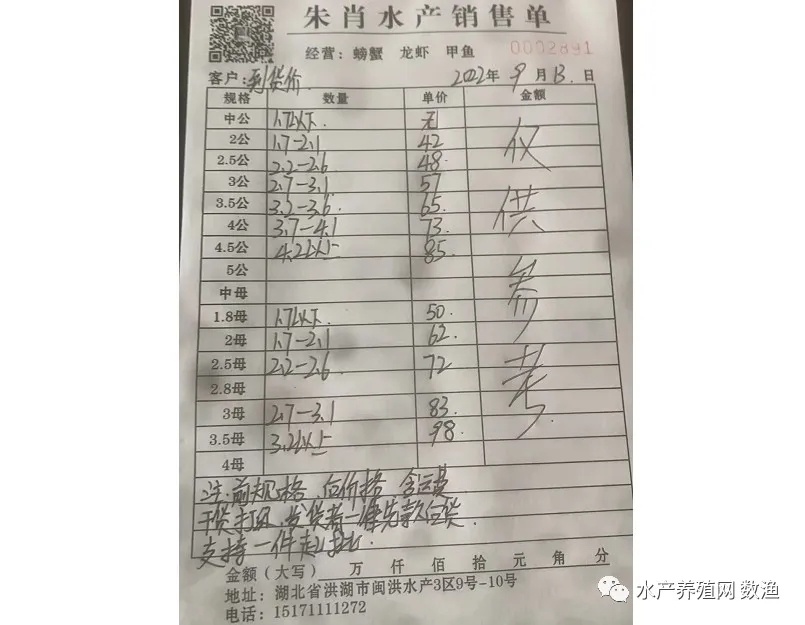 朱肖水产销售单
经营：螃蟹 龙虾 甲鱼 0002891
客户：到货价 2022年9月13.日
规格 数量 单价 金额
中公 1.7以下. 无
2公 1.7-2.1 42
2.5公 2.2-2.6 48.
3公 2.7-3.1 57
3.5公 3.2-3.6 65.
4公 3.7-4.1 73.
4.5公 4.2以上 85.
5公
中母
1.8母 1.7以下. 50.
2母 1.7-2.1 62.
2.5母 2.2-2.6 72
2.8母
3母 2.7-3.1 83.
3.5母 3.2以上 98.
4母
仅
供
参
考.
注:前规格.后价格.含运费
干货打包.发货者一律先款后货.
支持一件起批.
金额（大写） 万 仟 佰 拾 元 角 分
地址：湖北省洪湖市闽洪水产3区9号-10号
电话：15171111272
水产养殖网 数渔